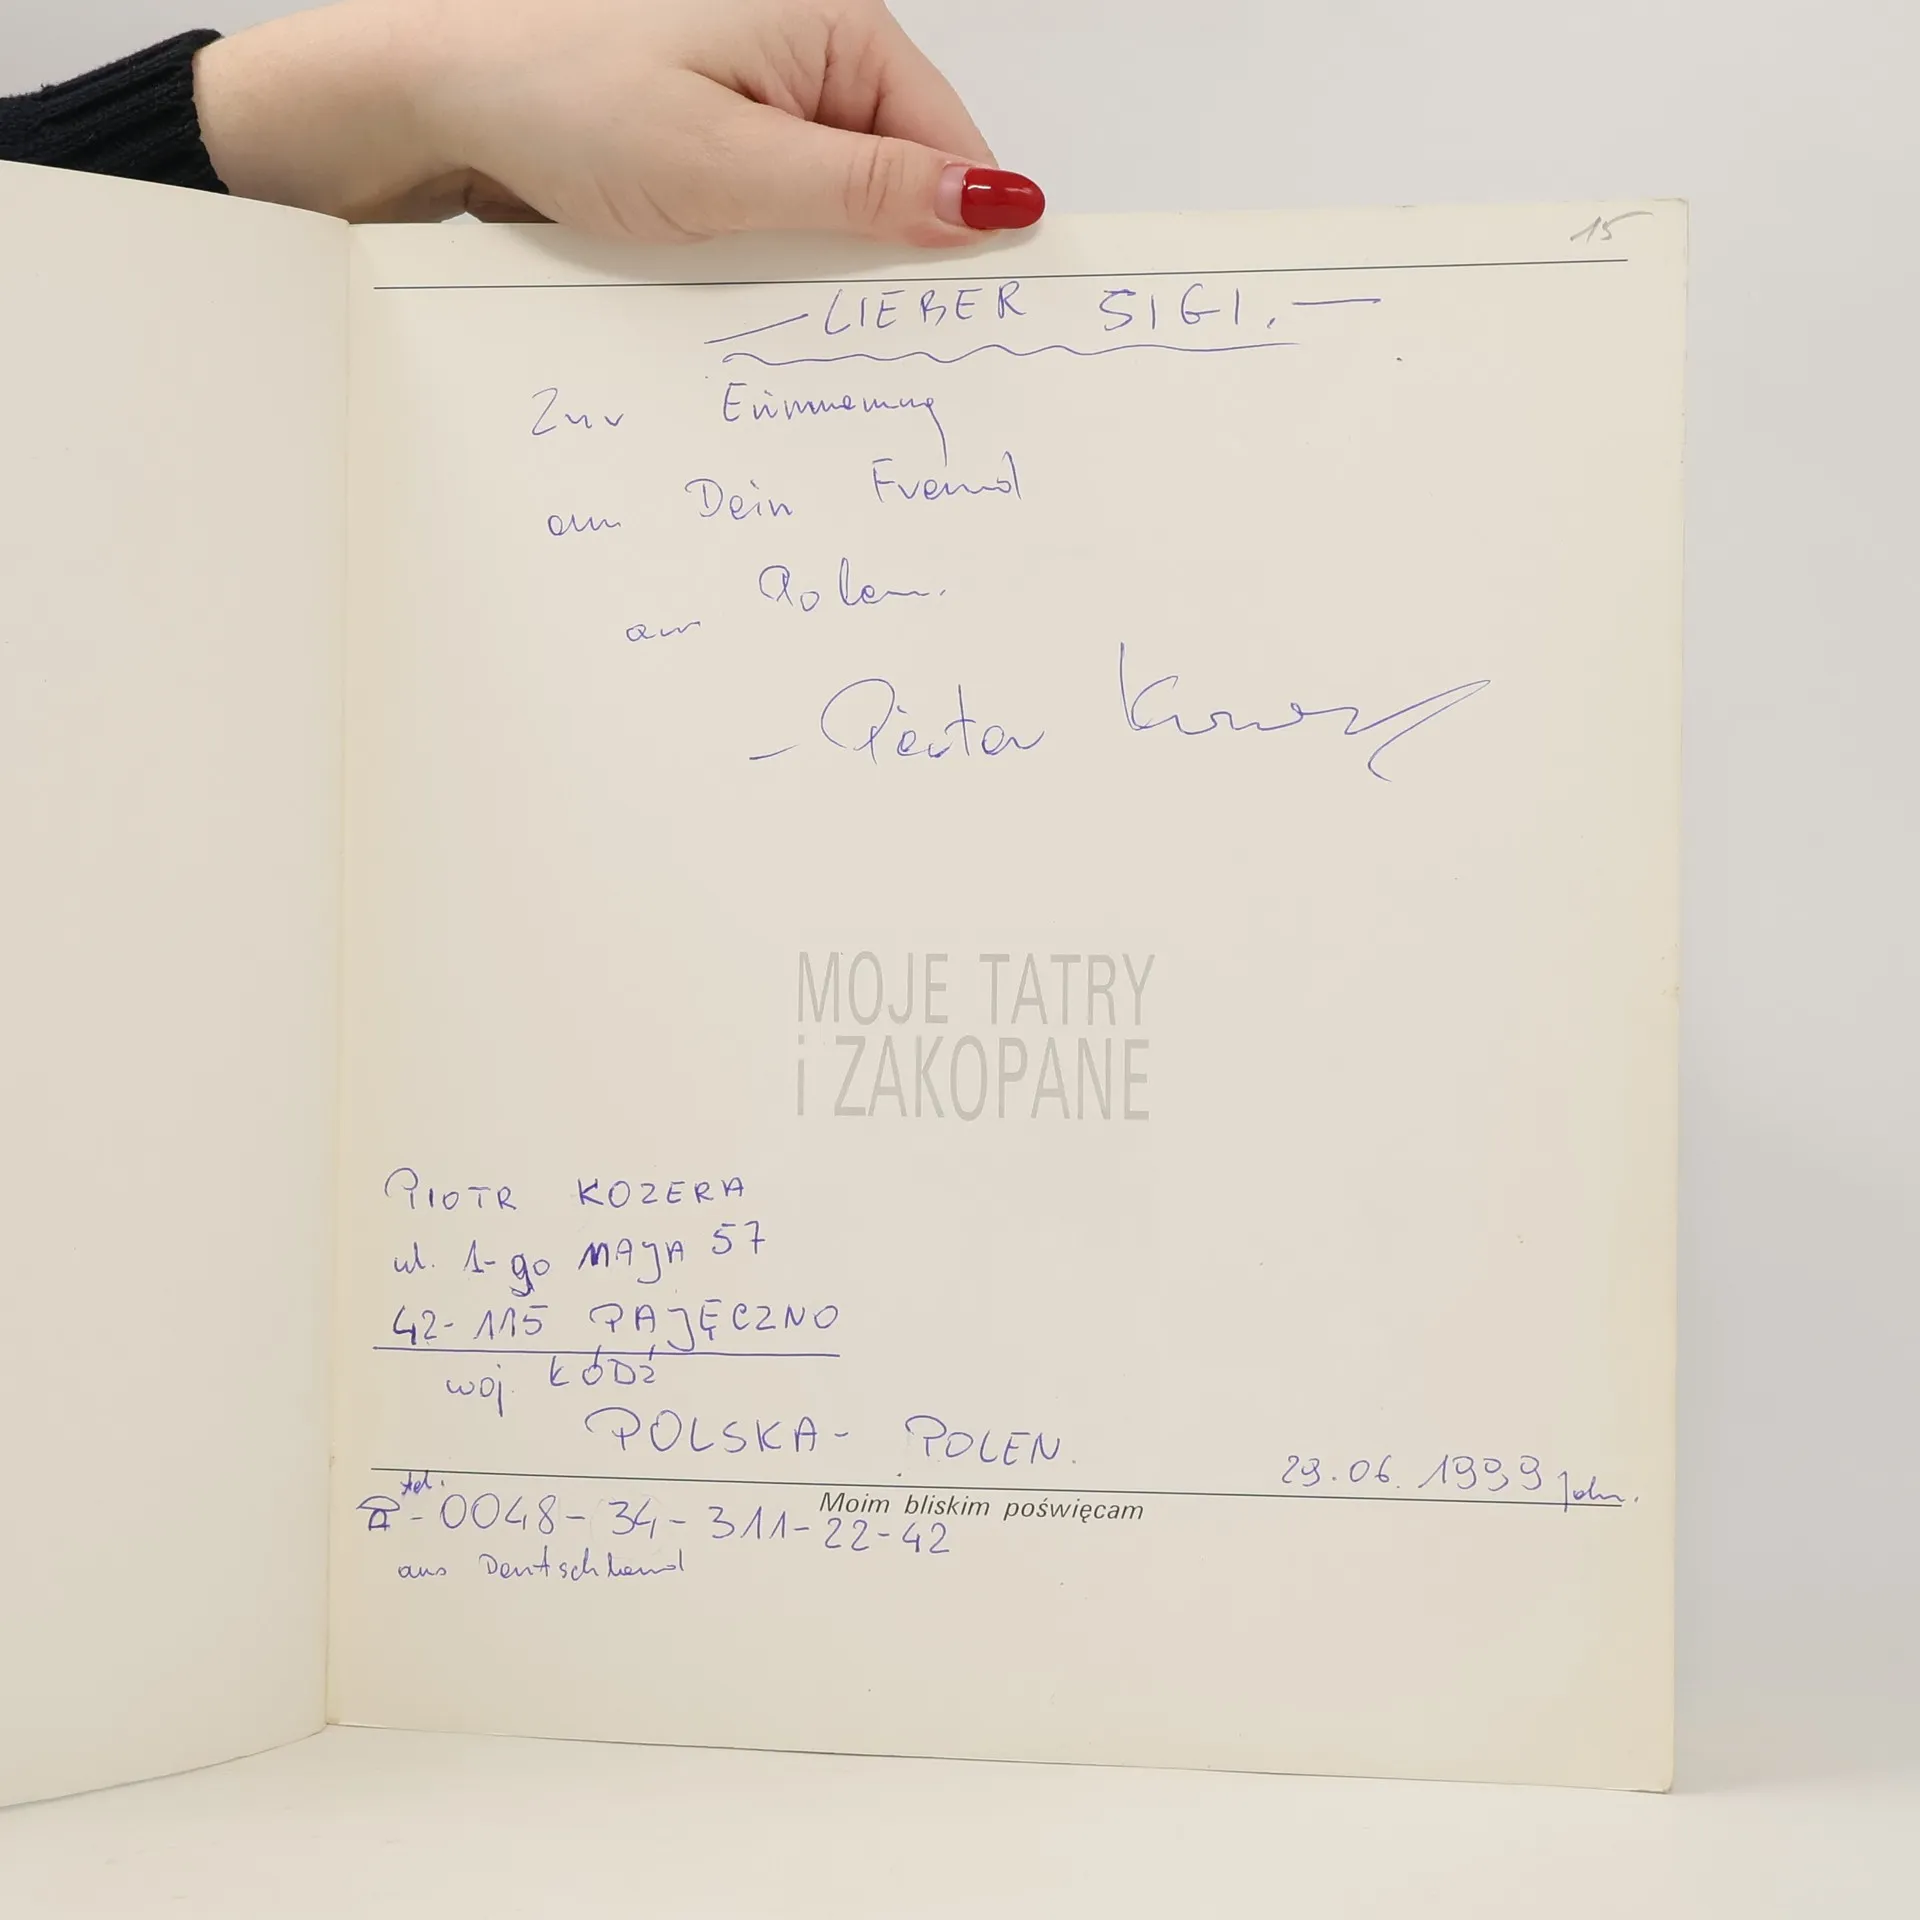 15
— LIEBER SIGI. —
Zur Erinnerung
an Dein Freund
aus Polen.
— Piotr
MOJE TATRY
i ZAKOPANE
PIOTR KOZERA
ul. 1-go MAJA 57
42-115 PAJĘCZNO
woj. ŁÓDŹ
POLSKA - POLEN.
29.06.1999
Moim bliskim poświęcam
tel.
☎ - 0048-34-311-22-42
aus Deutschland